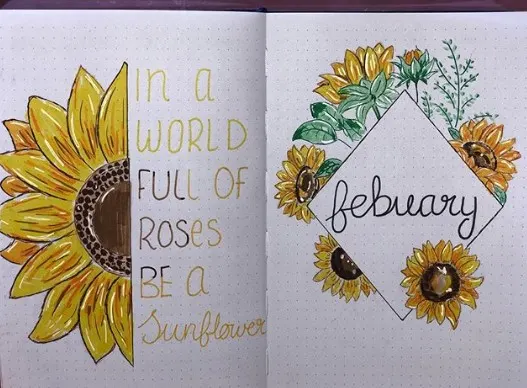 IN A
WORLD
FULL OF
ROSes
BE A
Sunflower
febuary